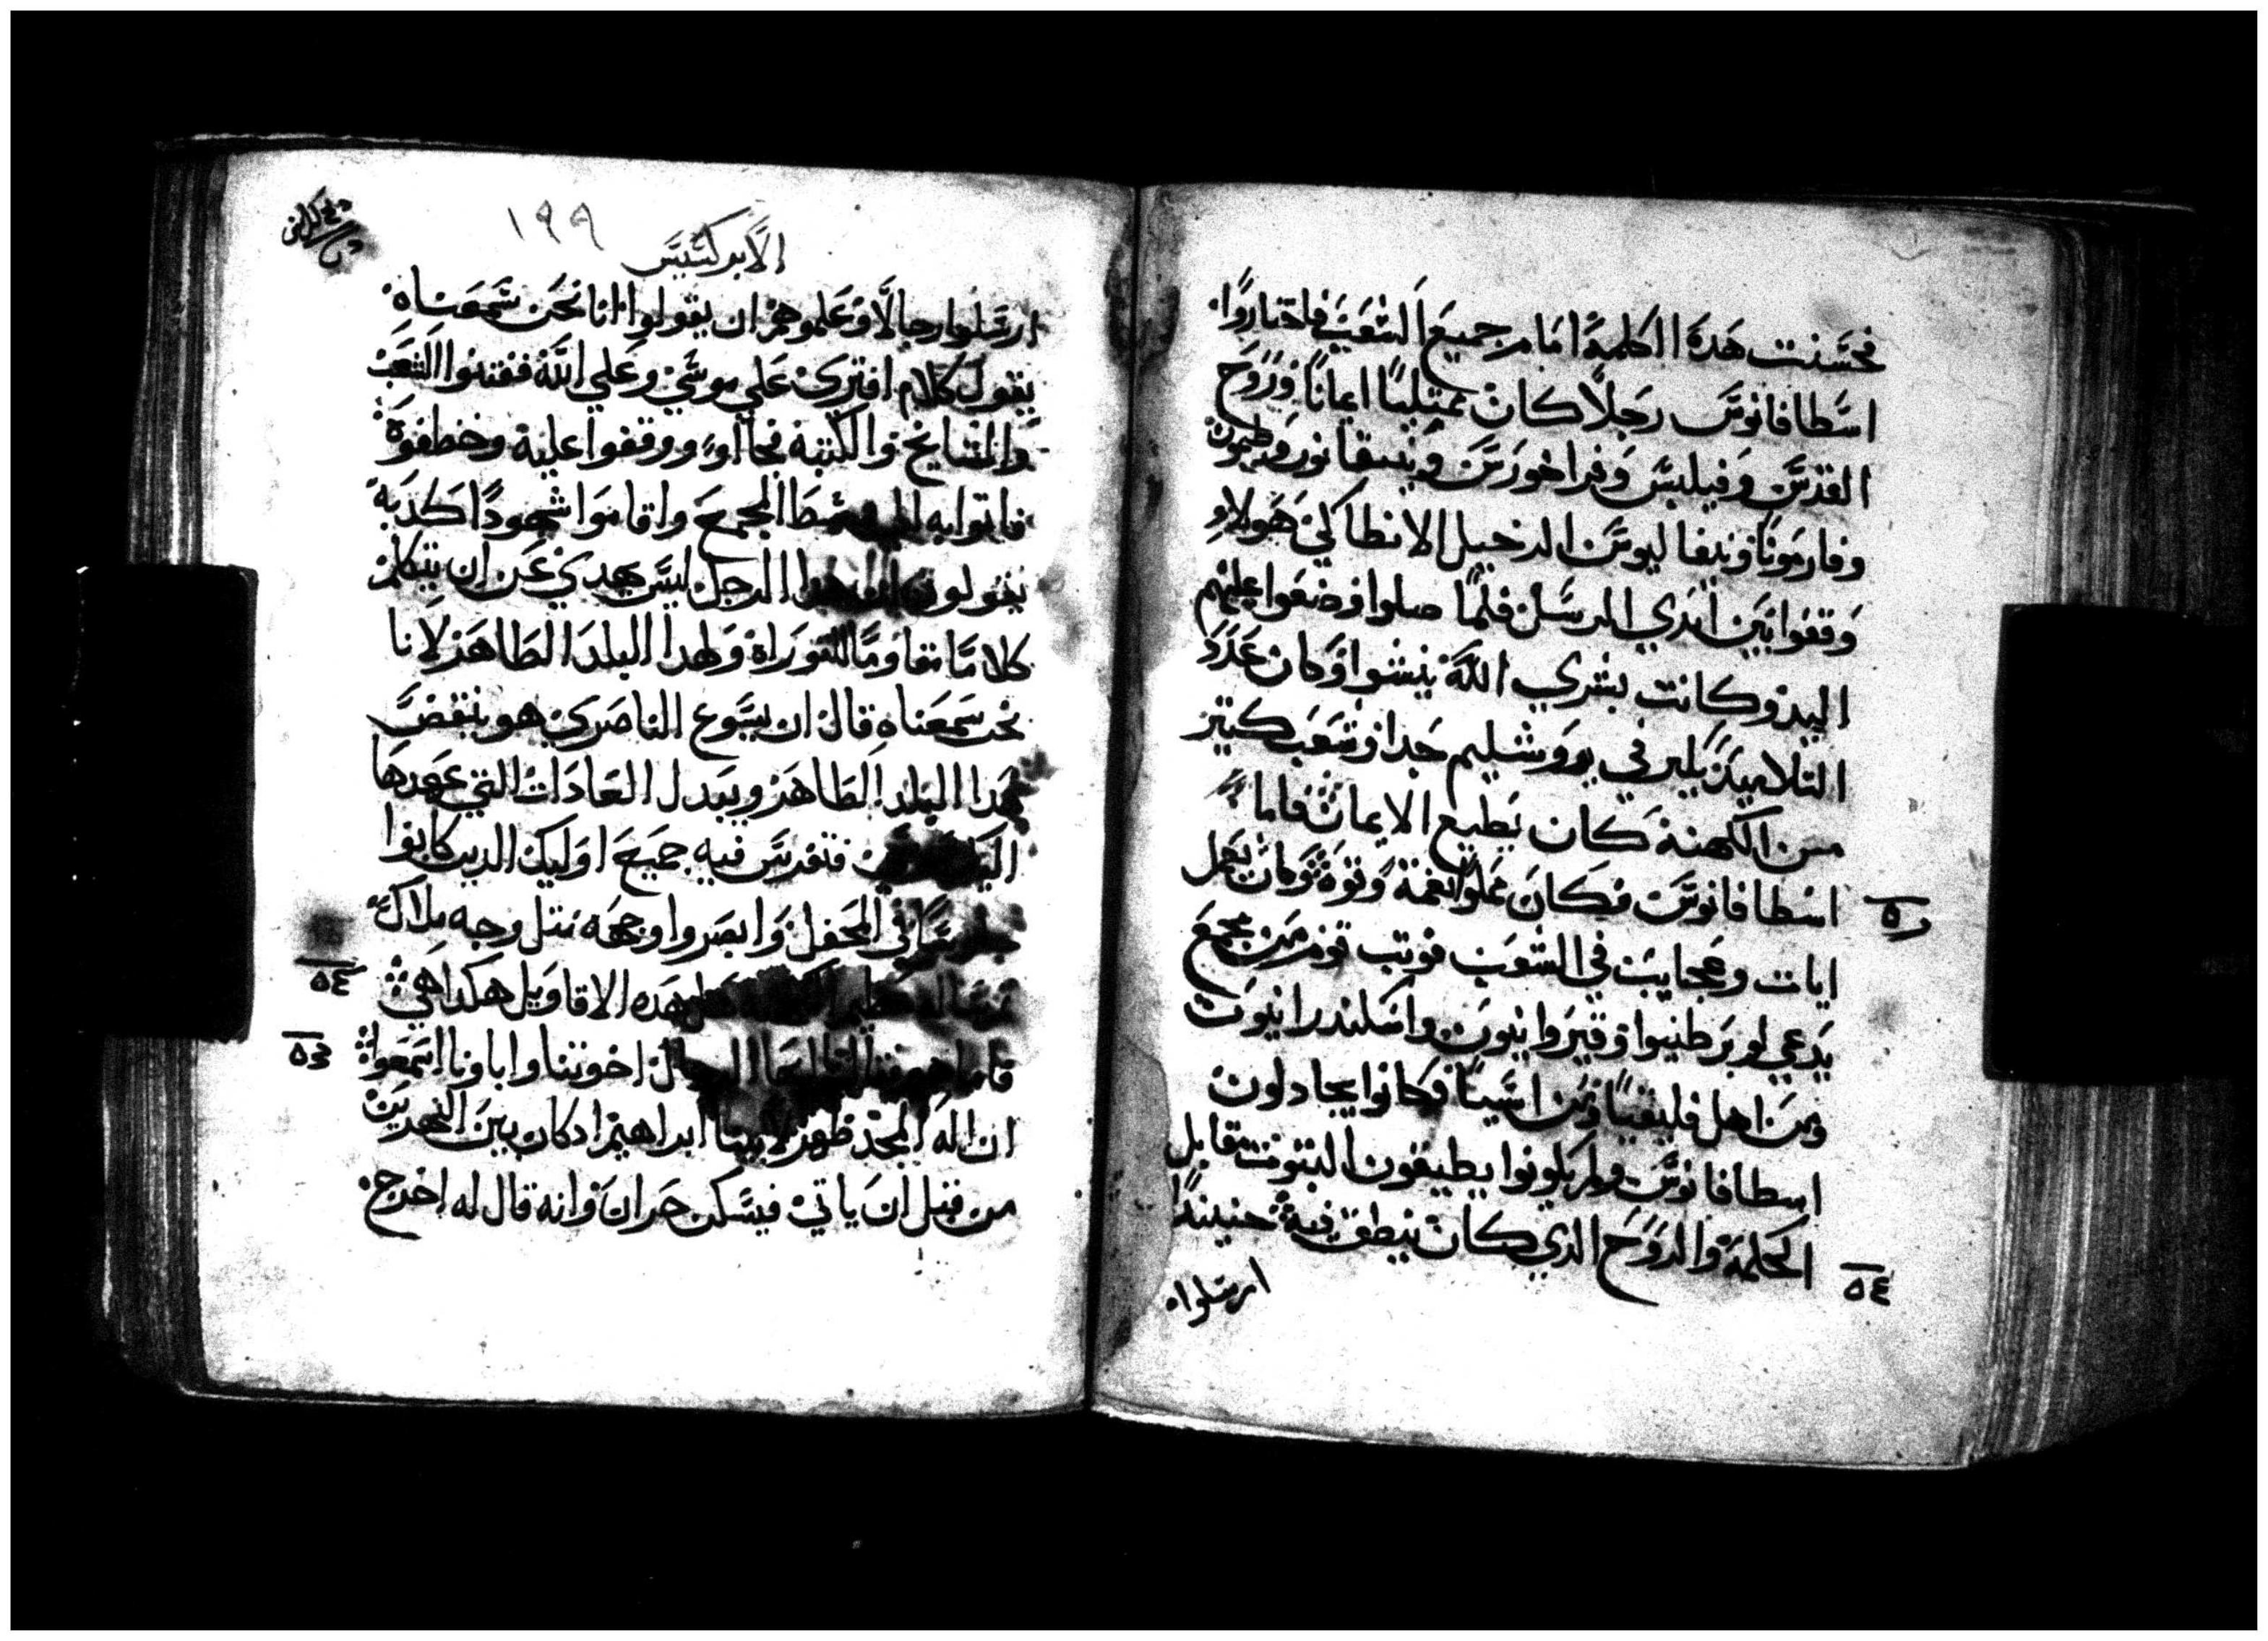 فحسنت هذه الكلمة امام جميع الشعب فاختاروا
اسطافانوس رجلا كان ممتليا ايمانا وروح
القدس وفيلبس وفراخورس ونيقانور وطيمون
وفارمونا ونيقاليوس الدخيل الانطاكي هولاء
وقفوا بين ايدي الرسل فلما صلوا وضعوا عليهم
اليد وكانت بشري الله تنشوا وكان عدد
التلاميذ يكبر في يوروشليم جدا وشعب كتير
من الكهنة كان يطيع الايمان فاما
اسطافانوس فكان مملوا نعمة وقوة وكان يعمل
ايات وعجايب في الشعب فوتب قوم من مجمع
يدعي لوبرطنيوا وقيروانيون واسكندرانيون
ومن اهل قليقيا ومن اسيا فكانوا يجادلون
اسطافانوس ولم يكونوا يطيقون التبوت مقابل
الحكمة والروح الذي كان ينطق فيه حينيذ
٥٤
ارسلوا
١٩٩
الابركسيس
ارسلوا رجالا وعلموهم ان يقولوا انا نحن سمعناه
يقول كلام افتري علي موسي وعلي الله ففتنوا الشعب
والمشايخ والكتبة فجااو ووقفوا عليه وخطفوه
فاتوا به الي وسط المجمع واقاموا شهودا كذبة
يقولون ان هذا الرجل ليس يهدي عن ان يتكلم
كلاما مقاوما للتوراة ولهدا البلد الطاهر لانا
نحن سمعناه قال ان يسوع الناصري هو ينقض
هدا البلد الطاهر ويبدل العادات التي عهدها
فتفرس فيه جميع اوليك الدين كانوا
في المحفل وابصروا وجهه متل وجه ملاك
هده الاقاويل هكدا هي
٥٤
اخوتنا واباونا اسمعوا
٥٣
ان اله المجد ظهر لابينا ابراهيم ادكان بين النهرين
من قبل ان ياتي فيسكن حران وانه قال له اخرج